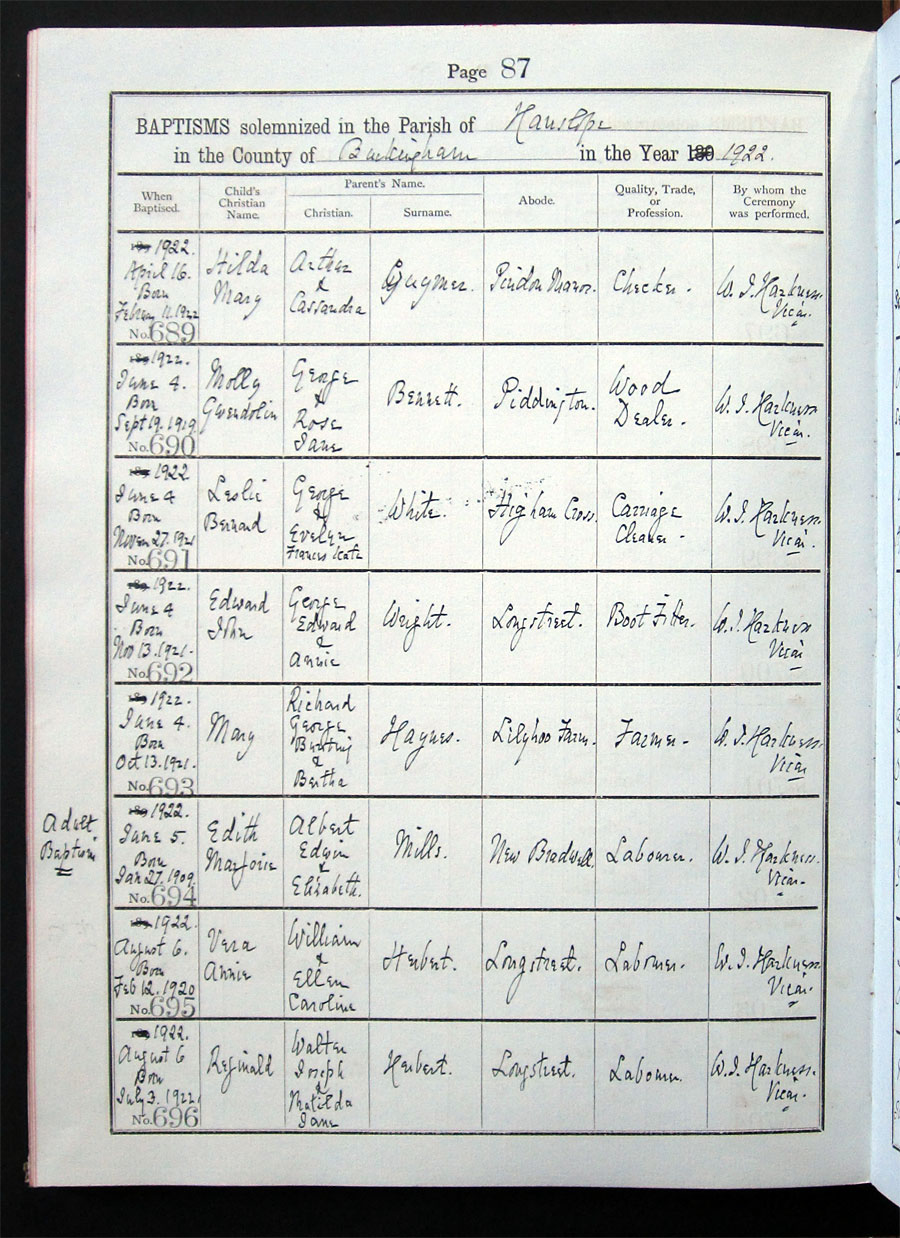 Page 87
BAPTISMS solemnized in the Parish of Hanslope
in the County of Buckingham in the Year 189 1922.
When Baptised.
Child's Christian Name.
Parent's Name.
Christian.
Surname.
Abode.
Quality, Trade, or Profession.
By whom the Ceremony was performed.
189 1922.
April 16.
Born
No. 689
Hilda
Mary
Arthur
&
Cassandra
Pindon Manor.
Checker.
W. J. Harkness.
Vicar.
189 1922.
June 4.
Born
Sept 19. 1919
No. 690
Molly
Gwendolin
George
&
Rose
Jane
Bennett.
Piddington.
Wood
Dealer.
W. J. Harkness
Vicar.
189 1922
June 4
Born
Novem 27. 1921
No. 691
Leslie
Bernard
George
&
Evelyn
Frances Kate
White.
Higham Cross.
Carriage
Cleaner.
W. J. Harkness.
Vicar.
189 1922.
June 4
Born
Nov 13. 1921.
No. 692
Edward
John
George
Edward
&
Annie
Wright.
Longstreet.
Boot Fitter.
W. J. Harkness
Vicar
189 1922.
June 4.
Born
Oct 13. 1921.
No. 693
Mary
Richard
George
Bunting
&
Bertha
Haynes.
Lilyhoo Farm.
Farmer.
W. J. Harkness.
Vicar
Adult
Baptism
189 1922.
June 5.
Born
Jan 27. 1909.
No. 694
Edith
Marjorie
Albert
Edwin
&
Elizabeth.
Mills.
New Bradwell.
Labourer.
W. J. Harkness.
Vicar.
189 1922.
August 6.
Born
Feb 12. 1920
No. 695
Vera
Annie
William
&
Ellen
Caroline
Herbert.
Longstreet.
Labourer.
W. J. Harkness.
Vicar.
189 1922.
August 6
Born
July 3. 1922.
No. 696
Reginald
Walter
Joseph
&
Matilda
Jane
Herbert.
Longstreet.
Labourer.
W. J. Harkness.
Vicar.